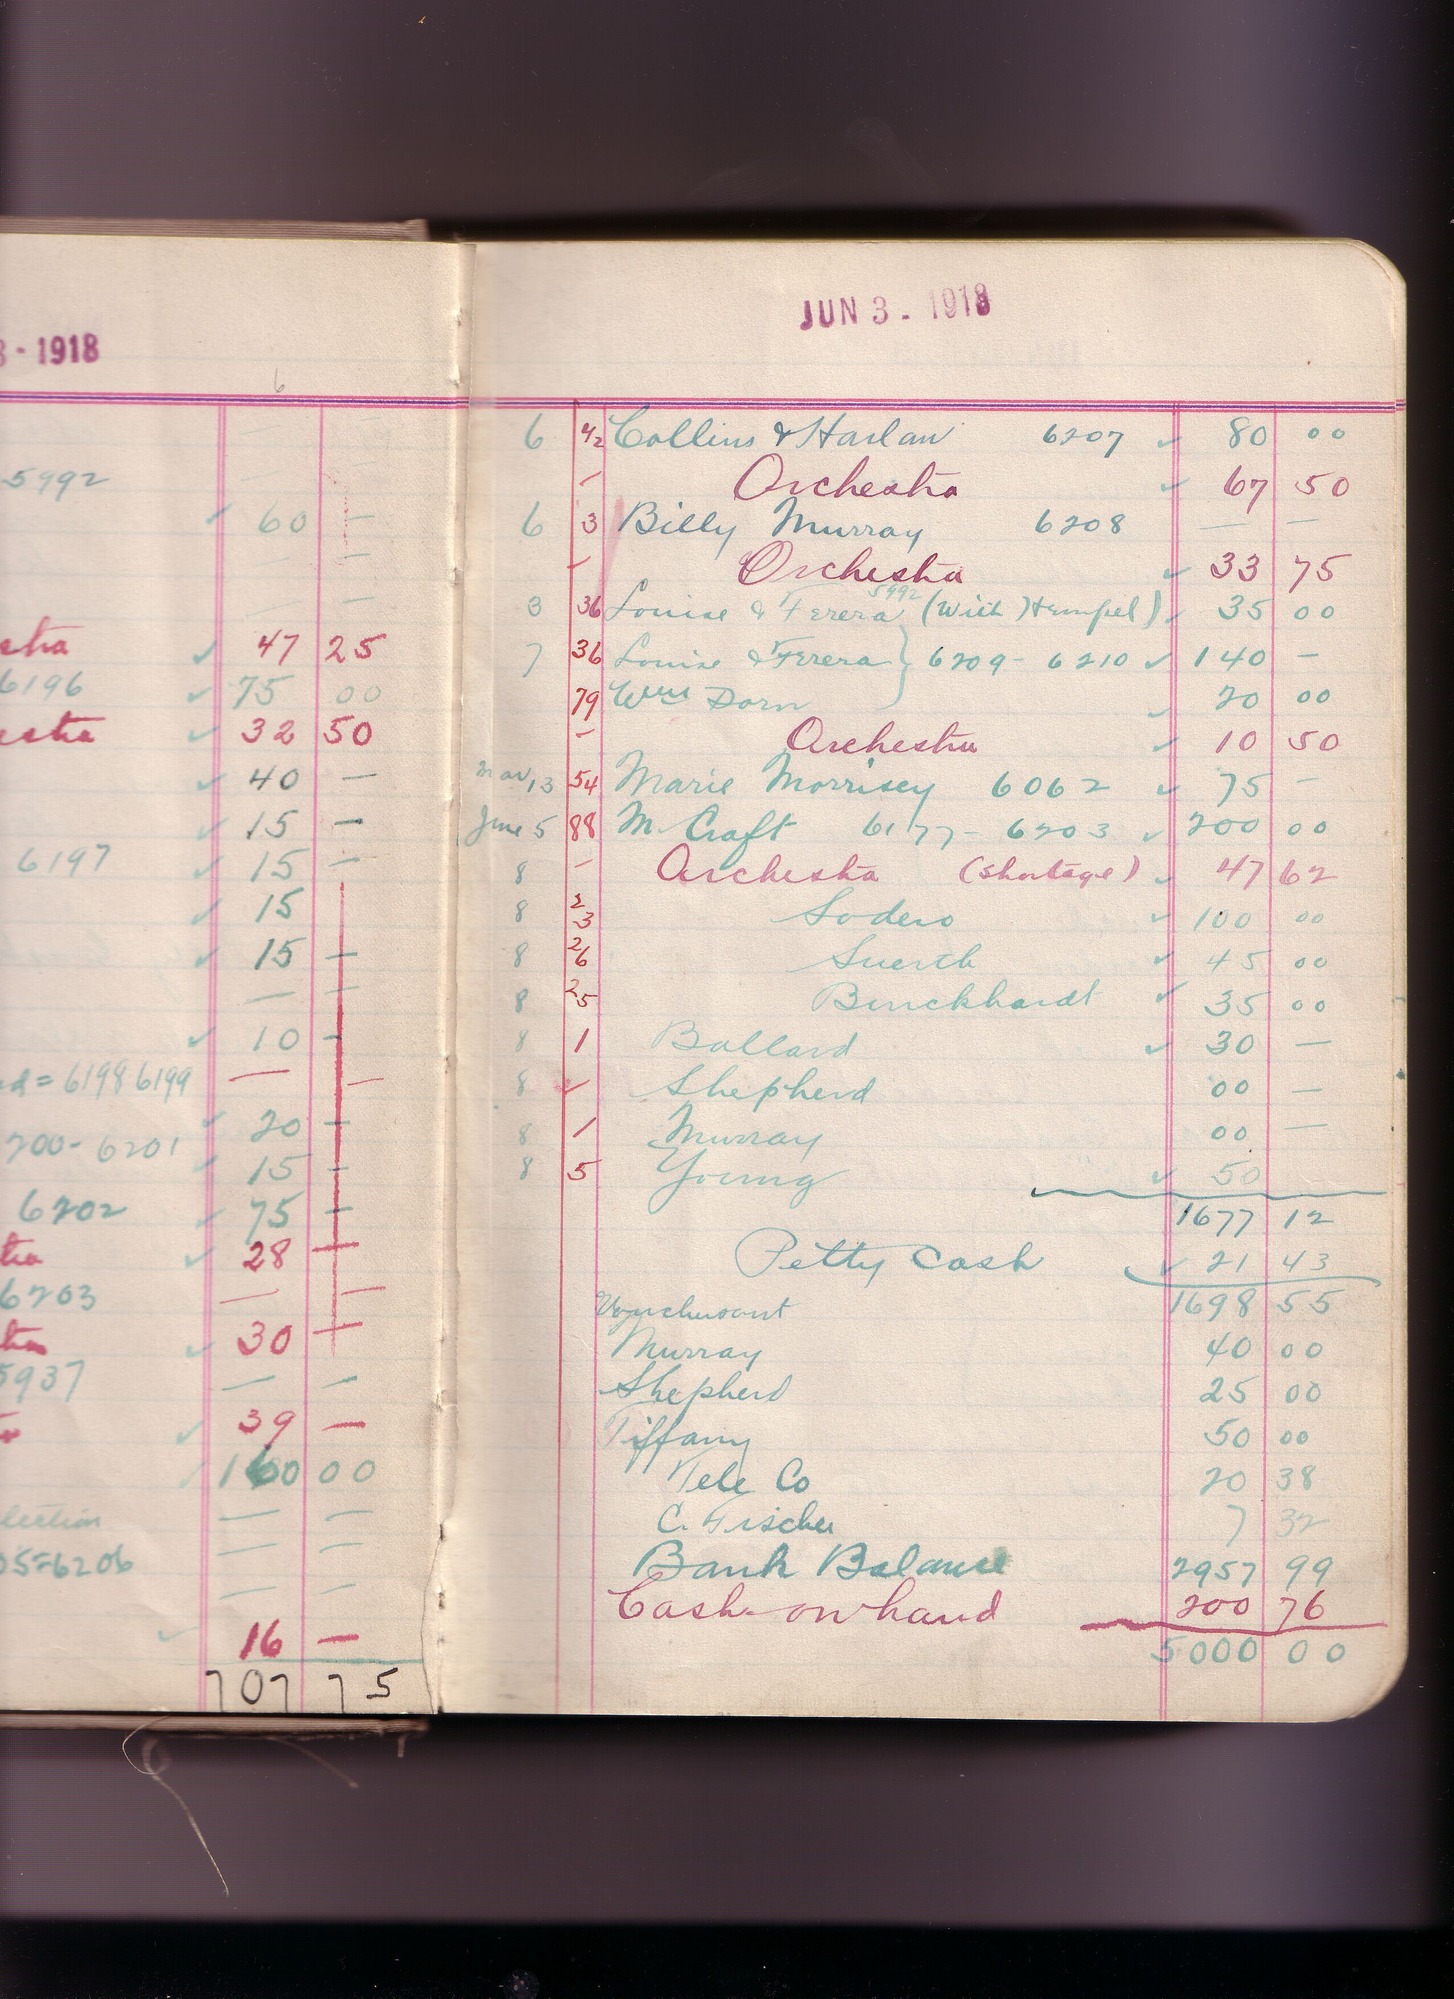 3 - 1918
6
5992
60 —
stra 47 25
6196 75 00
estra 32 50
40 —
15 —
6197 15 —
15
15 —
— —
10 -
ed = 6198 6199 — —
20 -
200 - 6201 15 -
6202 75 -
tra 28 —
6203 — —
tra 30 —
5937 — —
39 —
160 00
lection — —
05=6206 — —
— —
16 —
707 75
JUN 3. 1918
6 42 Collins & Harlan 6207 ✓ 80 00
— Orchestra ✓ 67 50
6 3 Billy Murray 6208 — —
— Orchestra ✓ 33 75
3 36 Louise & Ferera 5992 (With Hempel) ✓ 35 00
7 36 Louise & Ferera } 6209 - 6210 ✓ 140 —
79 Wm Dorn ✓ 20 00
— Orchestra ✓ 10 50
Mar, 13 54 Marie Morrisey 6062 ✓ 75 —
June 5 88 M. Craft 6177 - 6203 ✓ 200 00
8 — Orchestra (Shortage) ✓ 47 62
8 23 Sodero ✓ 100 00
8 26 Suerth ✓ 45 00
8 25 Burckhardt ✓ 35 00
8 1 Ballard ✓ 30 —
8 ✓ Shepherd 00 —
8 1 Murray 00 —
8 5 Young ✓ 50
1677 12
Petty Cash ✓ 21 43
1698 55
Murray 40 00
Shepherd 25 00
Tiffany 50 00
Tele Co 20 38
C. Fischer 7 32
Bank Balance 2957 99
Cash on hand 200 76
5000 00